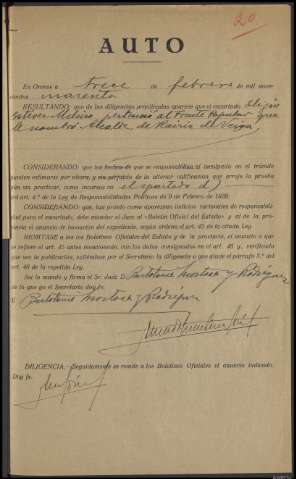 20
AUTO
En Orense a trece de febrero de mil nove-
cientos cuarenta
RESULTANDO: que de las diligencias practicadas aparece que el encartado Alejos
Esteve perteneció al Frente Popular que
le nombró Alcalde de Rairiz de Veiga
CONSIDERANDO: que los hechos de que se responsabiliza al inculpado en el trámite
pueden estimarse por ahora, y sin perjuicio de la ulterior calificación que arroje la prueba
sin practicar, como incursos en el apartado d)
del art. 4.º de la Ley de Responsabilidades Políticas de 9 de Febrero de 1939.
CONSIDERANDO: que, tan pronto como aparezcan indicios racionales de responsabili-
dad para el encartado, debe remitir el Juez al «Boletín Oficial del Estado» y al de la pro-
vincia el anuncio de incoación del expediente, según ordena el artículo 45 de la citada Ley.
REMITASE a los Boletines Oficiales del Estado y de la provincia, el anuncio a que
se refiere el art. 45 antes mencionado, con los datos consignados en el art. 46 y, verificada
que sea la publicación, extiéndase por el Secretario la diligencia a que alude el párrafo 3.º del
art. 46 de la repetida Ley.
Así lo manda y firma el Sr. Juez D. Bartolomé Mostaza y Rodríguez
de lo que yo el Secretario doy fe.
Bartolomé Mostaza y Rodríguez
DILIGENCIA.—Seguidamente se remite a los Boletines Oficiales el anuncio indicado.
Doy fe.